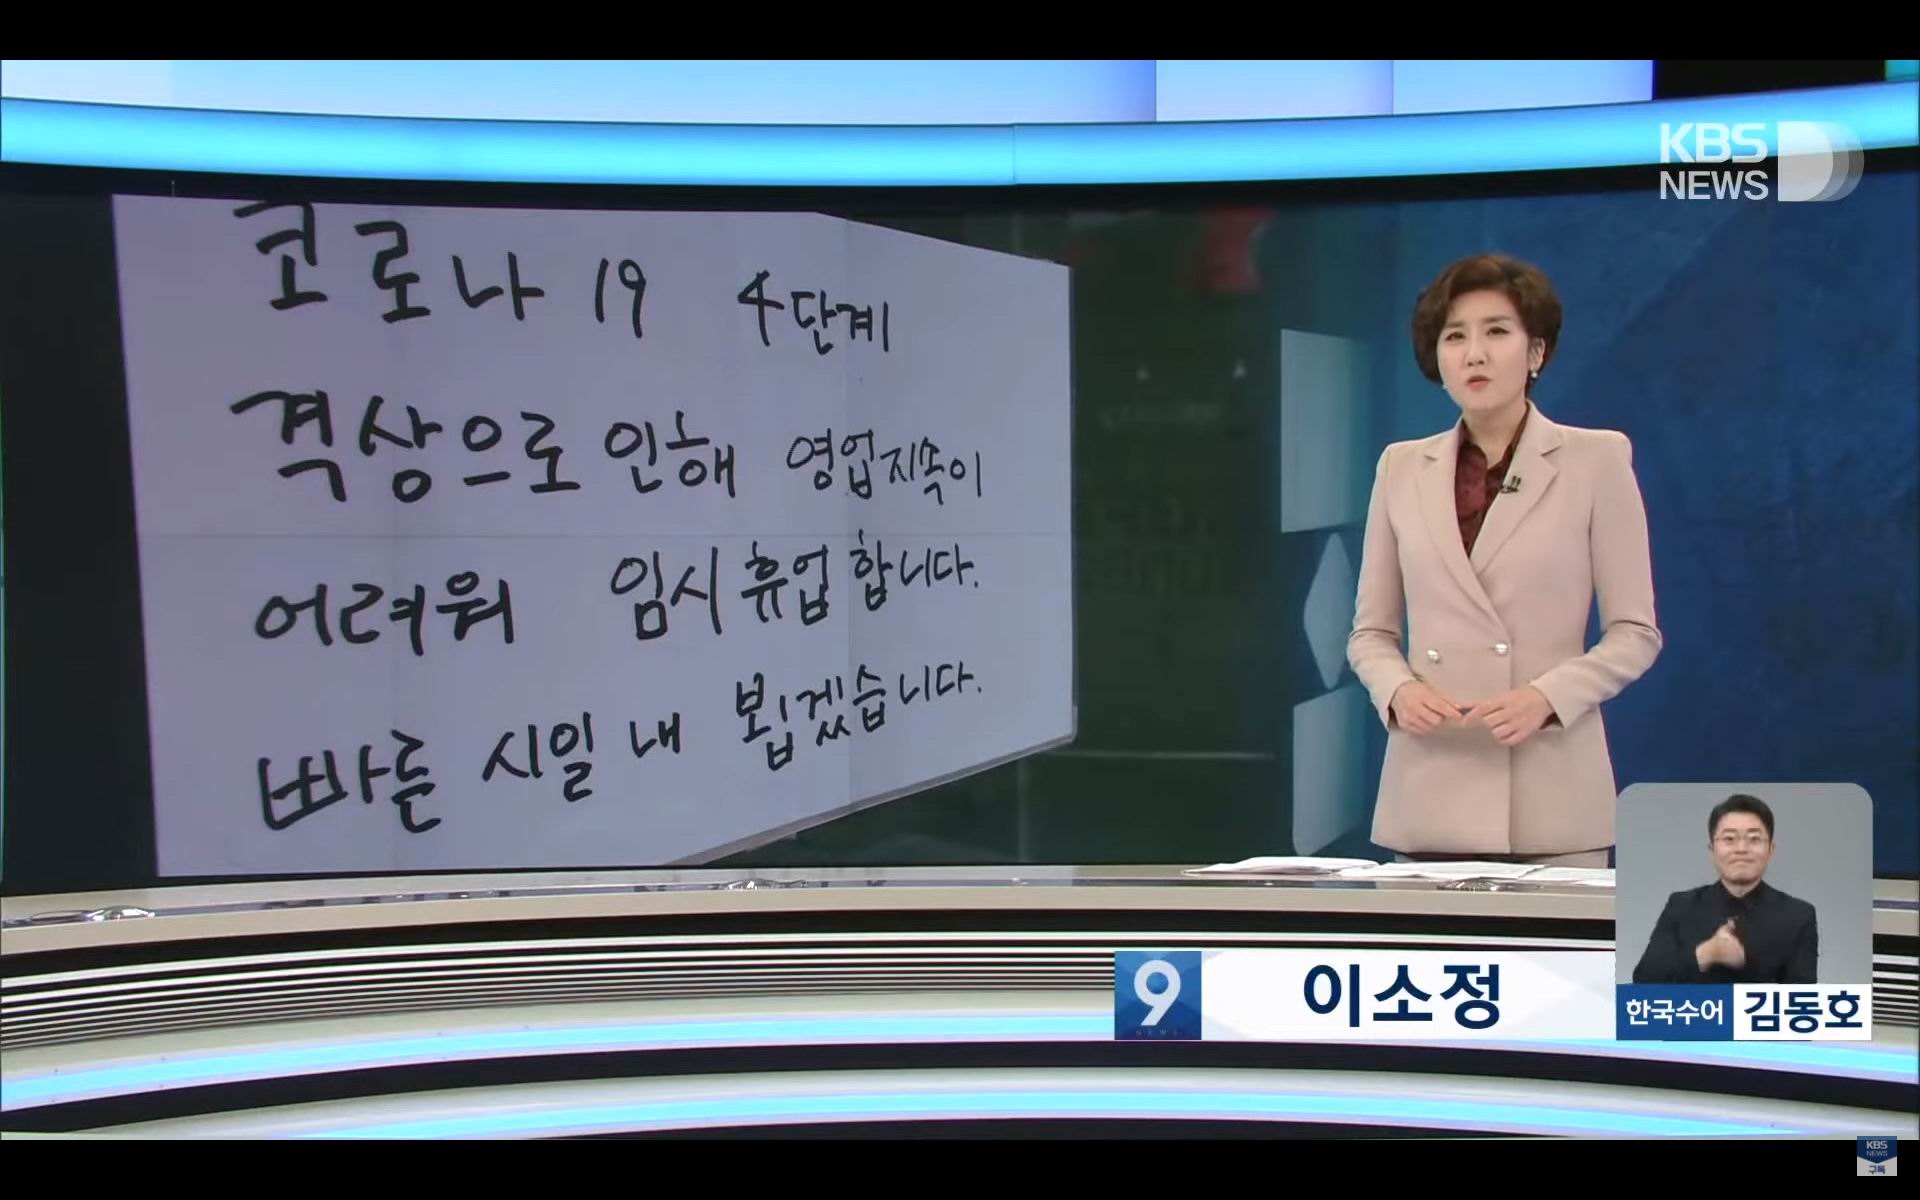 KBS
NEWS
코로나 19 4단계
격상으로 인해 영업지속이
어려워 임시휴업합니다.
빠른 시일 내 뵙겠습니다.
9 이소정
NEWS
한국수어 김동호
KBS
NEWS
구독